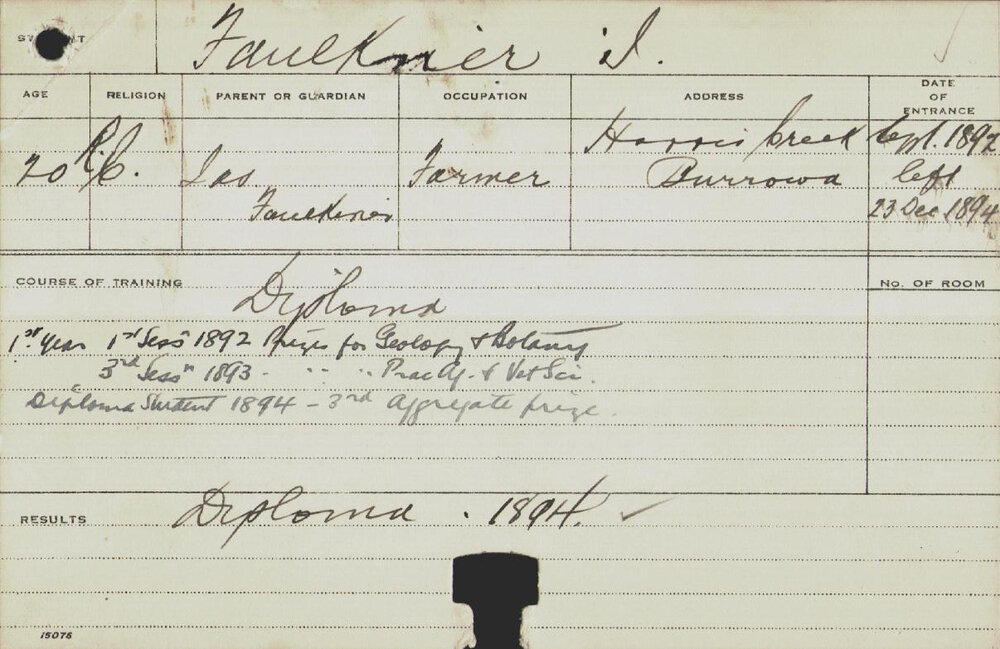 Faulkner J.
AGE RELIGION PARENT OR GUARDIAN OCCUPATION ADDRESS DATE OF ENTRANCE
20 R.C. Jas Faulkner Farmer Harris Creek Burrowa Sept. 1892
left
23 Dec 1894
COURSE OF TRAINING Diploma No. OF ROOM
1st Year 1st Sessn 1892 Prizes for Geology & Botany
" 3rd Sessn 1893 - " " Prac Ag. & Vet Sci.
Diploma Student 1894 - 3rd Aggregate prize.
RESULTS Diploma . 1894.
15075